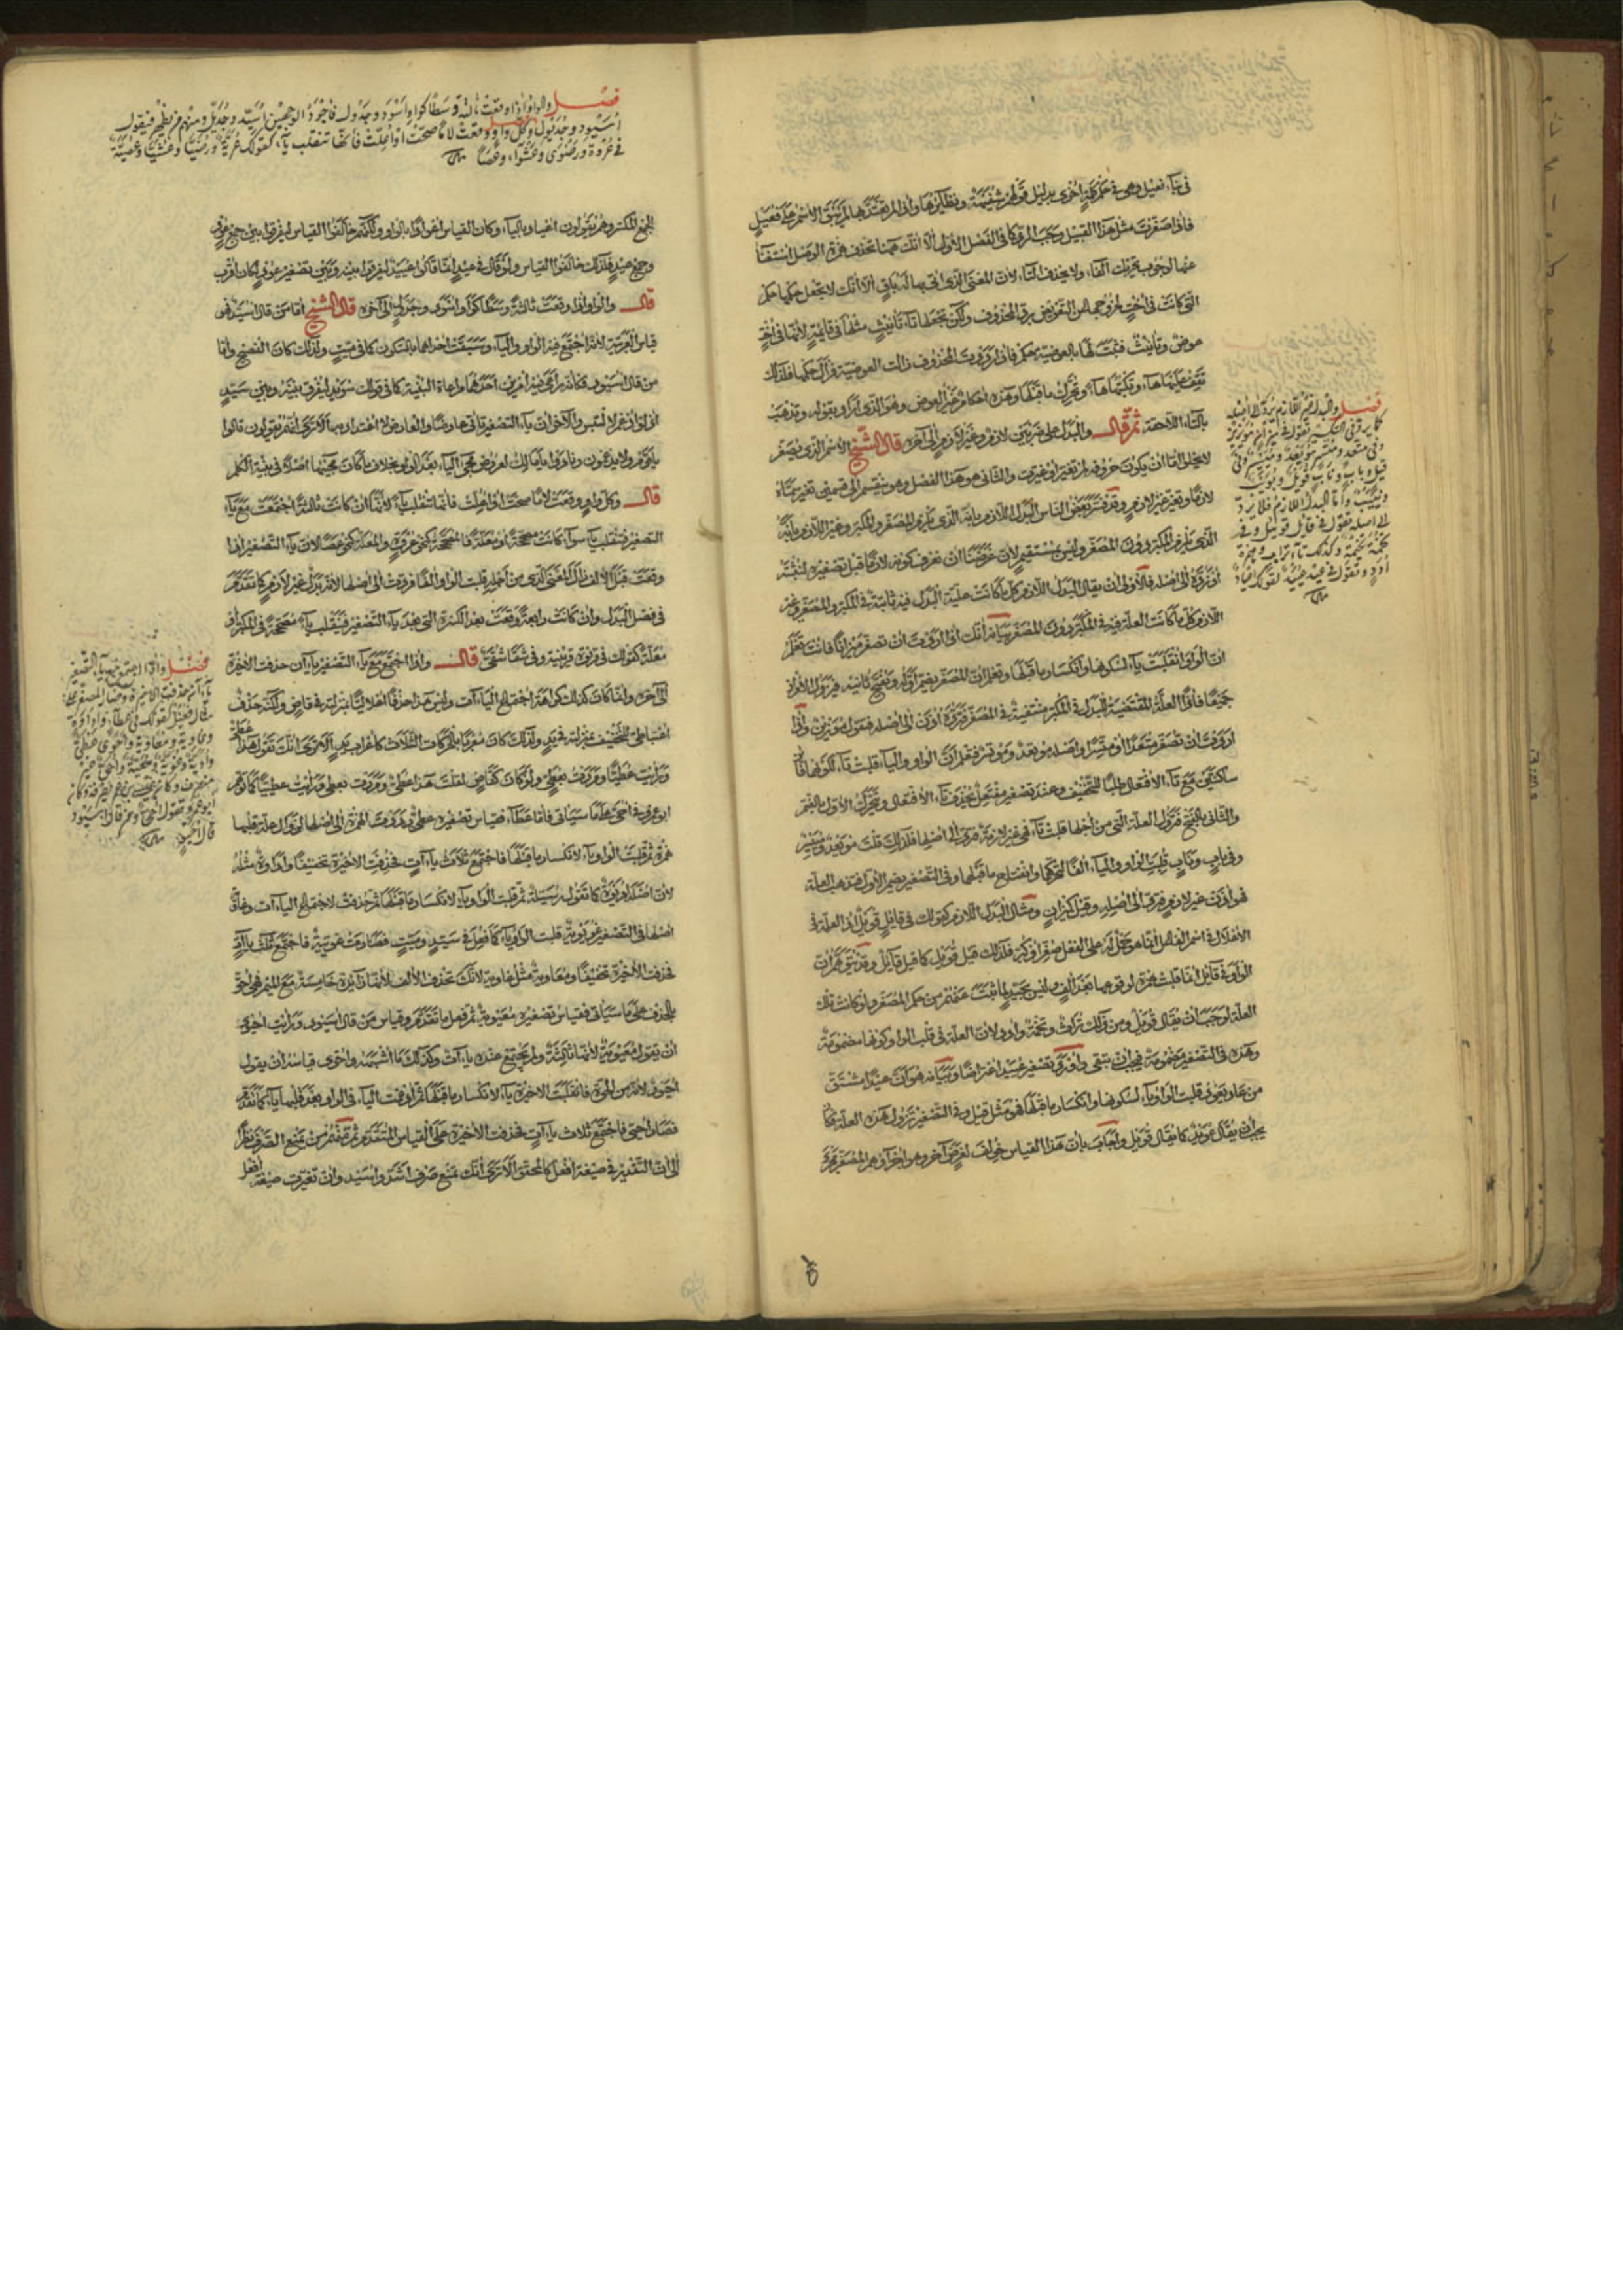 في بناء فعيل وهي في حكم كلمة أخرى بدليل قولهم شفيهة ونظائرها وإذا لم يعتد بها لم يبق الاسم على فعيل
فإذا صغرت مثل هذا القبيل وجب الرد كما في الفصل الأول إلا أنك ههنا تحذف همزة الوصل استغناء
عنها لوجوب تحريك الفاء ولا يحذف التاء لأن المعنى الذي أتي بها له باق إلا أنك لا تجعل حكمها حكم
التي كانت في أخت لخروجها عن التعويض برد المحذوف ولكن تجعلها تاء تأنيث مثلها في قائمة لأنها في أخت
عوض وتأنيث فثبت لها بالعوضية حكم فإذا رددت المحذوف زالت العوضية فزال حكمها فلذلك
تقف عليها هاء وتكتبها هاء وتحرك ما قبلها وهذه أحكام غير العوض وهو الذي أراد بقوله وتذهب
بالتاء اللاحقة ثم قال والبدل على ضربين لازم وغير لازم إلى آخره قال الشيخ الاسم الذي يصغر
لا يخلو إما أن يكون حروفه لم تغير أو غيرت والثاني هو هذا الفصل وهو ينقسم إلى قسمين تغير
لازما وتغير غير لازم وقد فسر بعض الناس البدل اللازم بأنه الذي يلزم المصغر والمكبر وغير اللازم بأنه
الذي يلزم المكبر دون المصغر وليس بمستقيم لأن غرضنا أن نعرف كونه لازما قبل تصغيره لنثبته
أو نرده إلى أصله فالأولى أن يقال البدل اللازم كل ما كانت علة البدل فيه ثابتة في المكبر والمصغر وغير
اللازم كل ما كانت العلة فيه في المكبر دون المصغر بيانه أنك إذا أردت أن تصغر ميزانا فأنت تعلم
أن الواو انقلبت ياء لسكونها وانكسار ما قبلها وتعلم أن المصغر يضم أوله ويفتح ثانيه فيزول الأمران
جميعا فإذا العلة المقتضية للبدل في المكبر منتفية في المصغر فترده إذن إلى أصله فتقول مويزين وإذا
أردت أن تصغر متعدا أو متسرا وأصله موتعد وموتسر فتعلم أن الواو والياء قلبت تاء لكونها
ساكنين مع تاء الافتعال طلبا للتخفيف وعند تصغير مفتعل تحذف تاء الافتعال وتحرك الأول بالضم
والثاني بالفتح فتزول العلة التي من أجلها قلبت تاء فهي غير لازمة فترد إلى أصلها فلذلك قلت مويعد ومييسر
وفي باب وناب قلبت الواو والياء ألفا لتحركها وانفتاح ما قبلها وفي التصغير يضم الأول فتذهب العلة
فهو إذن غير لازم فترد إلى أصله وقيل كميزان ومثال البدل اللازم كقولك في قائل قويئل إذ العلة في
الإعلال في اسم الفاعل إنما هو حمل له على الفعل صغر أو كبر فلذلك قيل قويئل كما قيل قائل وقد يتوهم أن
الواو في قائل إنما قلبت همزة لوقوعها بعد ألف وليس بجيد لما ثبت عنهم من حكم المصغر ولو كانت تلك
العلة لوجب أن يقال قويل ومن ذلك تراث وتخمة وأدد لأن العلة في قلب الواو كونها مضمومة
وهذه في التصغير مضمومة فيجب أن يبقى وأورد في تصغير عييد اعتراضا وبيانه هو أن عيدا مشتق
من عاد يعود قلبت الواو ياء لسكونها وانكسار ما قبلها فهو مثل قيل وفي التصغير تزول هذه العلة فكان
يجب أن يقال عويد كما يقال قويل وأجاب بأن هذا القياس خولف لغرض آخر وهو أنهم
فصل والبدل غير اللازم يرد إلى أصله
كما يرد في التكسير تقول في ميزان مويزين
وفي متعد ومتسر مويعد ومييسر وفي
قيل وباب وناب قويل وبويب
ونييب وأما البدل اللازم فلا يرد
إلى أصله تقول في قائل قويئل وفي
تخمة تخيمة وكذلك تاء تراث وهمزة
أدد وتقول في عيد عييد لقولك أعياد
فصل والواو إذا وقعت ثالثة وسطا كواو أسود وجدول فأجود الوجهين أسيد وجديل ومنهم من يظهر فيقول
أسيود وجديول وكل واو وقعت لاما صحت أو أعلت فإنها تنقلب ياء كقولك عرية ورضيا وعشيا وعصية
في عروة ورضوى وعشواء وعصا
الجمع المكسر وهم يقولون أعياد بالياء وكان القياس أعوادا بالواو ولكنهم خالفوا القياس ليفرقوا بين جمع عود
وجمع عيد فلذلك خالفوا القياس ولو قال في عيد إنما قالوا عييد ليفرقوا بينه وبين تصغير عود لكان أقرب
قال والواو إذا وقعت ثالثة وسطا كواو أسود وجدول إلى آخره قال الشيخ أما من قال أسيد فهو
قياس العربية لأنه اجتمع فيه الواو والياء وسبقت إحداهما بالسكون كما في ميت ولذلك كان الفصيح وأما
من قال أسيود فكأنه راعى فيه أمرين أحدهما مراعاة البنية كما في قولك سويد ليفرق بينه وبين سيد
قال وكل واو وقعت لاما صحت أو أعلت فإنها تنقلب ياء لأنها إن كانت ثالثة اجتمعت مع ياء
التصغير فتقلب ياء سواء كانت مصححة أو معلة فالمصححة كنحو عروة والمعلة كنحو عصا لأن ياء التصغير إذا
وقعت قبل الألف زال المعنى الذي من أجله قلبت الواو ألفا فردت إلى أصلها لأنه بدل غير لازم كما تقدم
في فصل البدل وإن كانت رابعة وقعت بعد الكسرة التي بعد ياء التصغير فتنقلب ياء مصححة في المكبر أو
معلة كقولك في قال وإذا اجتمع مع ياء التصغير ياءان حذفت الأخيرة
إلى آخره وإنما كان كذلك كراهة اجتماع الياءات وليس هذا حذفا إعلاليا بمنزلته في قاض ولكنه حذف
اعتباطي للتخفيف بمنزلته في يد ولذلك كان معربا بالحركات الثلاث كإعراب يد ألا ترى أنك تقول هذا عطي
ورأيت عطيا ومررت بعطي ولو كان كقاض لقلت هذا عطي ومررت بعطي ورأيت عطييا كما توهم
أبو عمرو في أحي على ما سيأتي فأما عطاء فقياس تصغيره عطيي ردت الهمزة إلى أصلها لزوال علة قلبها
همزة ثم قلبت الواو ياء لانكسار ما قبلها فاجتمع ثلاث ياءات فحذفت الأخيرة تخفيفا وإداوة مثله
أصلها في التصغير غويوية قلبت الواو ياء كما فعل في سيد وميت فصارت غويية فاجتمع ثلاث ياءات
فحذفت الأخيرة تخفيفا ومعاوية مثل غاوية لأنك تحذف الألف لأنها زائدة خامسة مع الميم فهي أحق
بالحذف على ما سيأتي فقياس تصغيره معيوية ثم فعل ما تقدم وقياس من قال أسيود ورأيت أحيوي
أن يقول معيوية لأنها ثالثة ولم يجتمع عنده ياءات وكذلك ما أشبهه وأحوى قياسه أن يقول
أحيوي لأنه من الحوة فانقلبت الأخيرة ياء لانكسار ما قبلها ثم أدغمت الياء في الواو بعد قلبها ياء كما تقدم
فصار أحيي فاجتمع ثلاث ياءات فحذفت الأخيرة على القياس المتقدم ثم منهم من يمنع الصرف نظرا
إلى أن التقدير في صيغة أفعل كالمحقق ألا ترى أنك تمنع صرف أشد وأسيد وإن تغيرت صيغة أفعل
فصل وإذا اجتمع مع ياء التصغير
ياءان حذفت الأخيرة وصار المصغر على
مثال فعيل كقولك في عطاء وإداوة
وغاوية ومعاوية وأحوى عطي
وأدية وغوية ومعية وأحي غير
منصرف وكان عيسى بن عمر يصرفه وكان
أبو عمرو يقول أحي ومن قال أسيود
قال أحيو